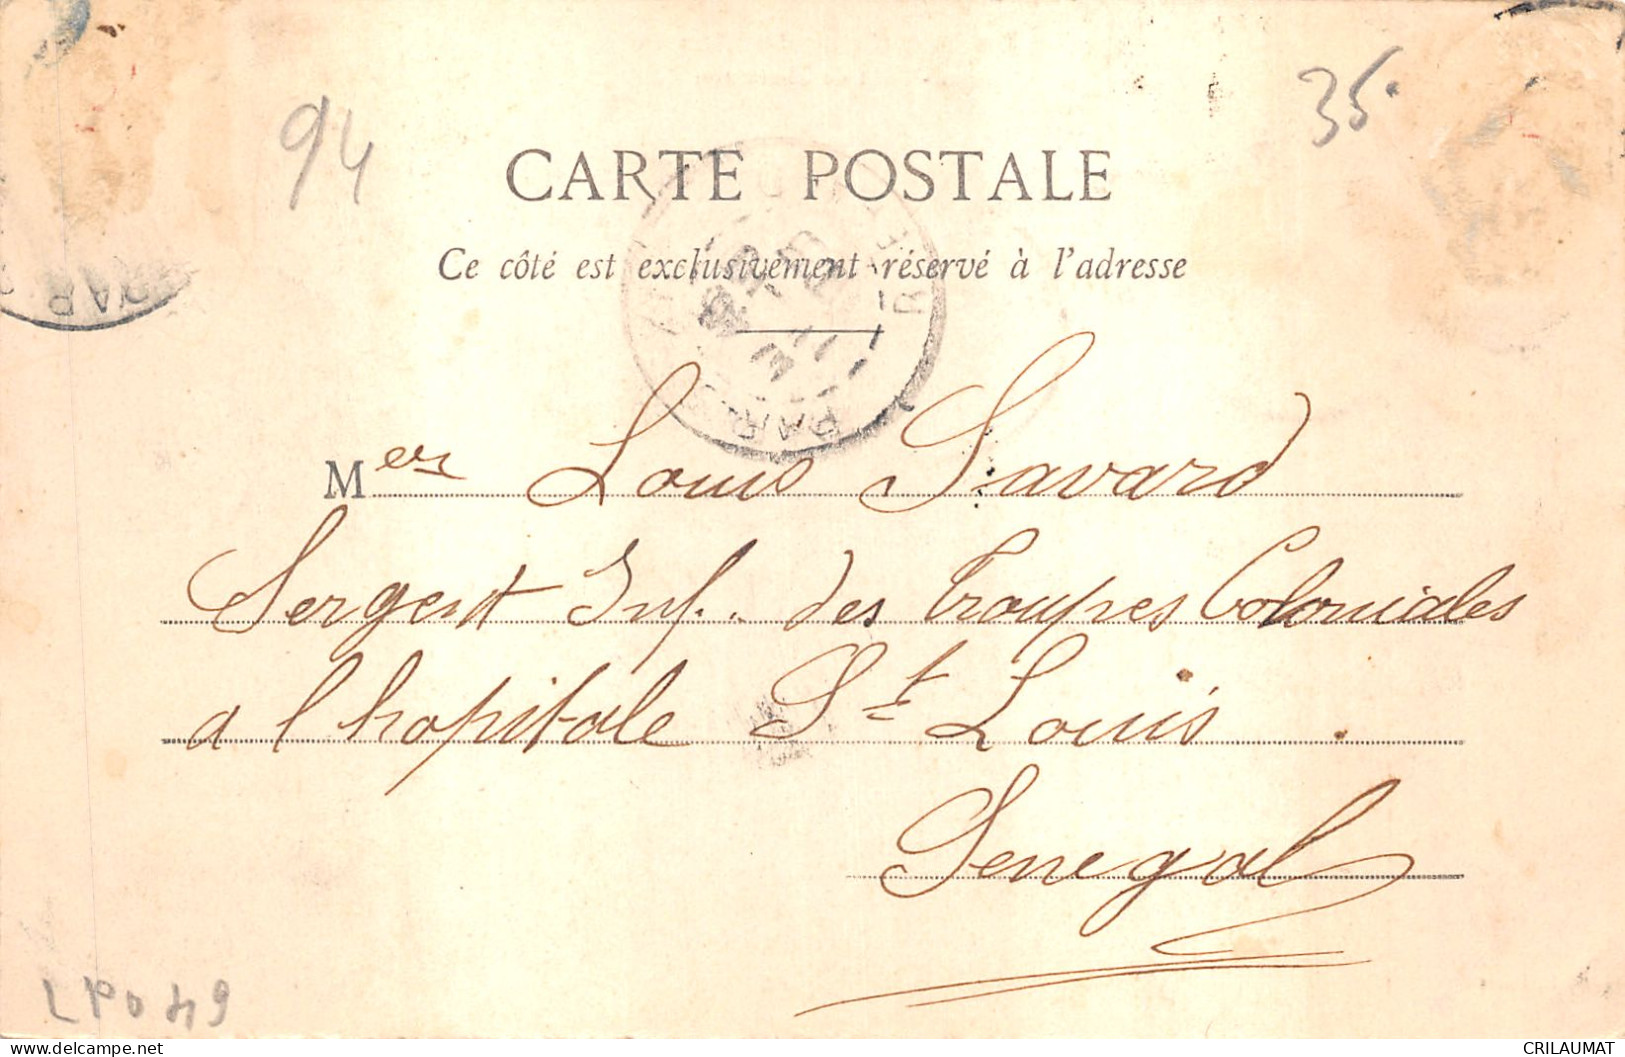 94
35
CARTE POSTALE
Ce côté est exclusivement réservé à l'adresse
PAR
PAR
Mer Louis Savard
Sergent Inf. des Troupes Coloniales
a l hopitale St Louis .
Senegal
CRILAUMAT